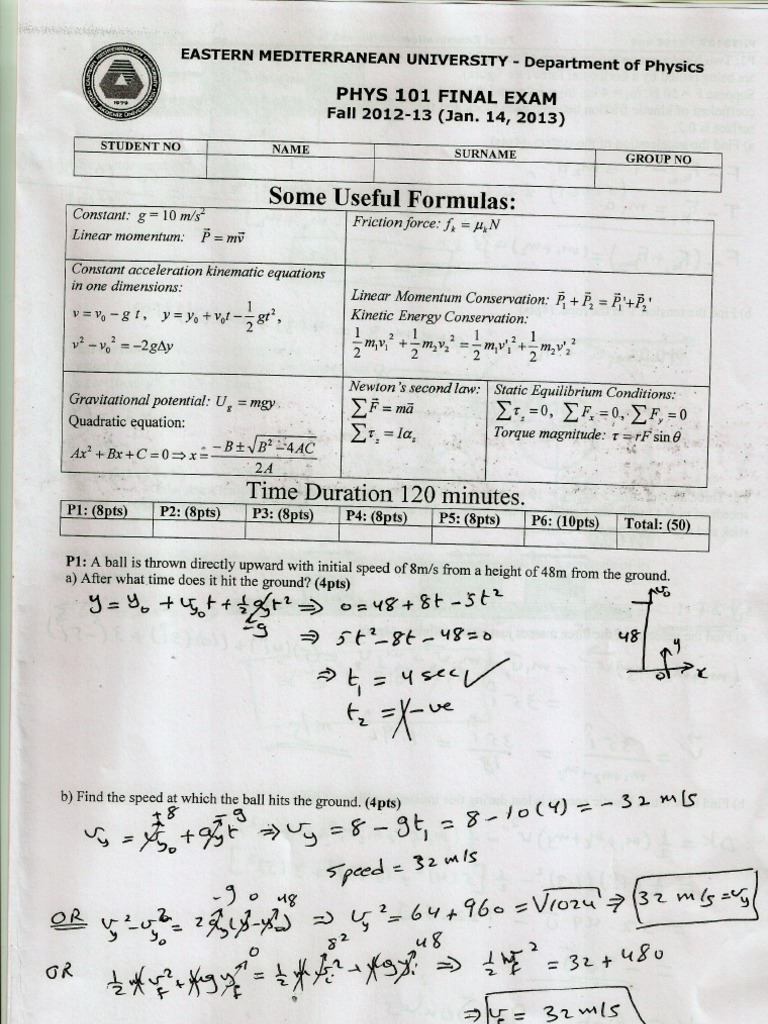 EASTERN MEDITERRANEAN UNIVERSITY - Department of Physics
PHYS 101 FINAL EXAM
Fall 2012-13 (Jan. 14, 2013)
STUDENT NO NAME SURNAME GROUP NO
Some Useful Formulas:
Constant: g = 10 m/s²
Linear momentum: P⃗ = mv⃗
Friction force: f_k = μ_k N
Constant acceleration kinematic equations
in one dimensions:
v = v₀ − g t , y = y₀ + v₀t − 1/2 gt² ,
v² − v₀² = −2gΔy
Linear Momentum Conservation: P⃗₁ + P⃗₂ = P⃗₁' + P⃗₂'
Kinetic Energy Conservation:
1/2 m₁v₁² + 1/2 m₂v₂² = 1/2 m₁v'₁² + 1/2 m₂v'₂²
Gravitational potential: U_g = mgy
Quadratic equation:
Ax² + Bx + C = 0 ⇒ x = (−B ± √(B² − 4AC)) / 2A
Newton's second law:
∑F⃗ = ma⃗
∑τ_z = Iα_z
Static Equilibrium Conditions:
∑τ_z = 0, ∑F_x = 0, ∑F_y = 0
Torque magnitude: τ = rF sin θ
Time Duration 120 minutes.
P1: (8pts) P2: (8pts) P3: (8pts) P4: (8pts) P5: (8pts) P6: (10pts) Total: (50)
P1: A ball is thrown directly upward with initial speed of 8m/s from a height of 48m from the ground.
a) After what time does it hit the ground? (4pts)
y = y₀ + v_y₀ t + 1/2 g_y t² ⇒ 0 = 48 + 8t − 5t²
−g
⇒ 5t² − 8t − 48 = 0
⇒ t₁ = 4 sec ✓
t₂ = −ve
v₀
48
y
0 x
b) Find the speed at which the ball hits the ground. (4pts)
+8 −g
v_y = v_y₀ + g_y t ⇒ v_y = 8 − gt₁ = 8 − 10(4) = −32 m/s
speed = 32 m/s
−g 0 48
OR v_y² − v_y₀² = 2g_y(y − y₀) ⇒ v_y² = 64 + 960 = √1024 ⇒ 32 m/s = v_y
0 8² 48
OR 1/2 m v_f² + m g y_f = 1/2 m v_i² + m g y_i ⇒ 1/2 v_f² = 32 + 480
⇒ v_f = 32 m/s